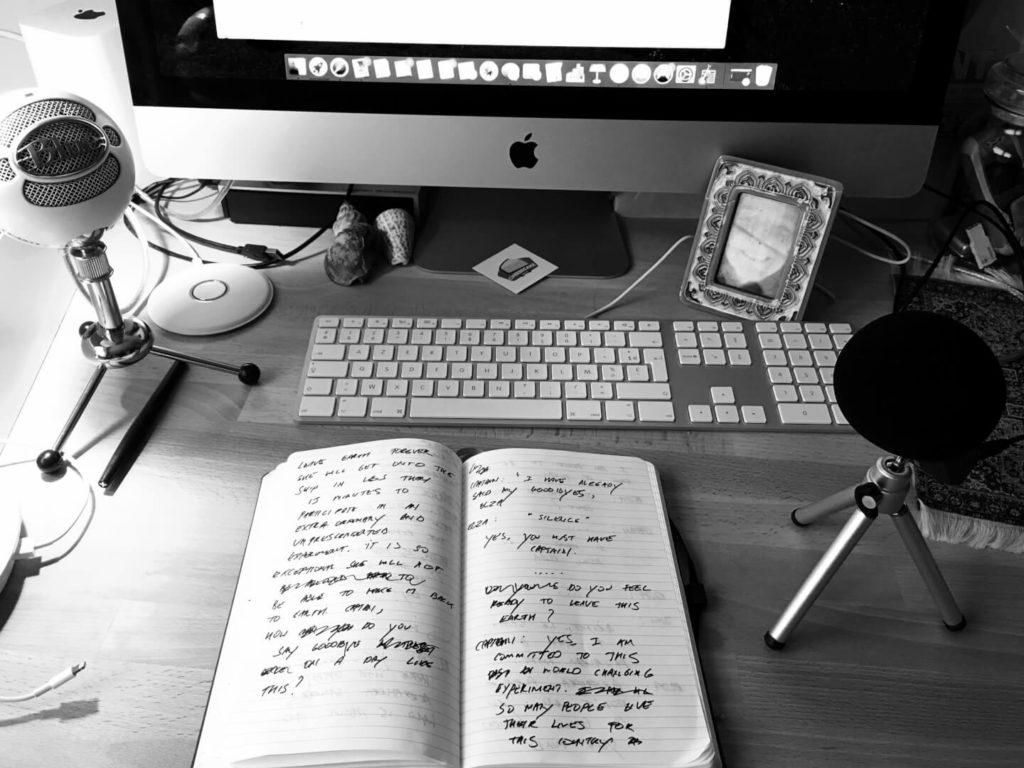 BLUE
LEAVE EARTH FOREVER
SHE WILL GET INTO THE
SHIP IN LESS THEN
15 MINUTES TO
PARTICIPATE IN AN
EXTRA ORDINARY AND
UNPRESCENDENTED
EXPERIMENT. IT IS SO
EXCEPTIONAL SHE WILL NOT
TO
BE ABLE TO MAKE IT BACK
TO EARTH. CAPTAIN,
HOW DO YOU
SAY GOODBYE
ON A DAY LIKE
THIS?
ELZA
CAPTAIN: "I HAVE ALREADY
SAID MY GOODBYES,
ELZA
ELZA: "SILENCE"
YES, YOU MUST HAVE
CAPTAIN.
.....
DO YOU FEEL
READY TO LEAVE THIS
EARTH?
CAPTAIN: YES, I AM
COMMITTED TO THIS
WORLD CHANGING
EXPERIMENT.
SO MANY PEOPLE LIVE
THEIR LIVES FOR
THIS COUNTRY AS